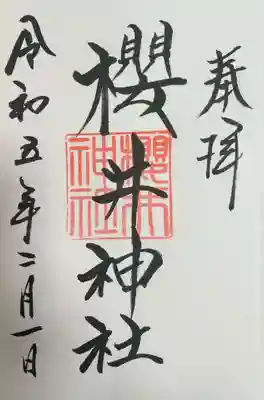 奉拝
櫻井神社
櫻井
神社
令和五年二月一日